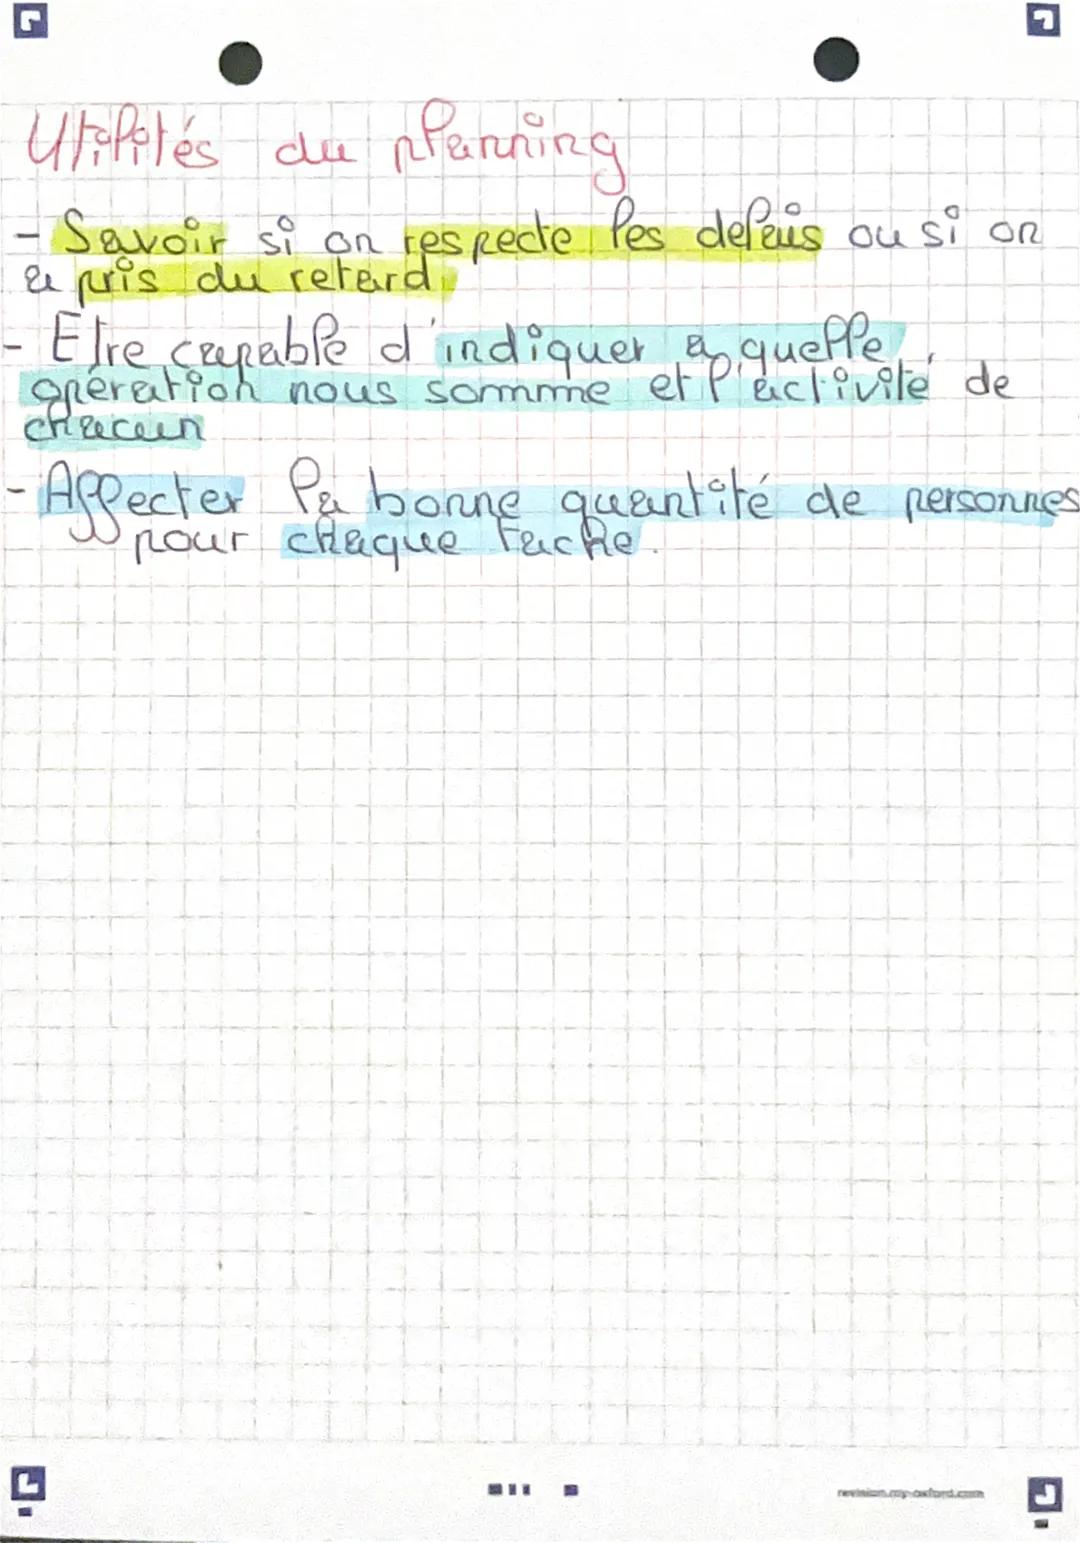 Utilités du planning
- Savoir si on respecte les delais ou si on
a pris du retard
- Etre capable d'indiquer a quelle
opération nous somme et l'activité de
chacun
- Affecter la bonne quantité de personnes
pour chaque tache.
revision.my-oxford.com